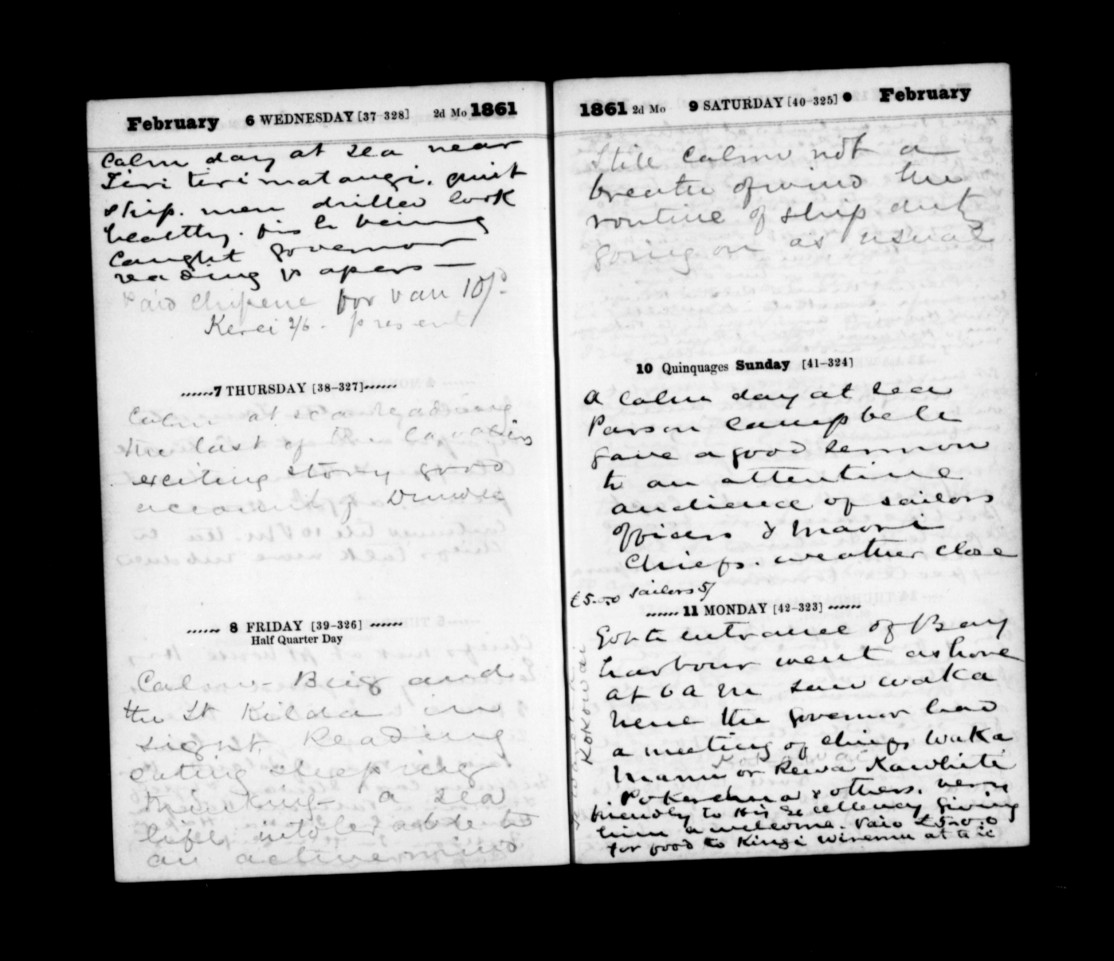 February 6 WEDNESDAY [37-328] 2d Mo 1861
Calm day at sea near
Tiri tiri matangi. quiet
ship. men drilled look
healthy. fish being
caught governor
reading papers —
Paid Chipene for van 10/.
Kerei 2/6. present
7 THURSDAY [38-327]
Calm at sea reading
the last of the Cavaliers
exciting story good
according
8 FRIDAY [39-326]
Half Quarter Day
Calm - Brig and
the St Kilda in
sight. Reading
eating sleeping
thinking a sea
life intolerable to
an active mind
1861 2d Mo 9 SATURDAY [40-325] February
Still calm not a
breath of wind the
routine of ship duty
going on as usual
10 Quinquages Sunday [41-324]
A calm day at sea
Parson Campbell
gave a good sermon
to an attentive
audience of sailors
officers & Maori
Chiefs. weather close
£5.0.0 sailors 5/
11 MONDAY [42-323]
Got to entrance of Bay
harbour went ashore
at 6 a m saw waka
nene the governor had
a meeting of chiefs Waka
or Rewa Kawhiti
& others. very
friendly to His Excellency giving
him a welcome. Paid £5.0.0
for food to Kingi Wiremu
Kokowai